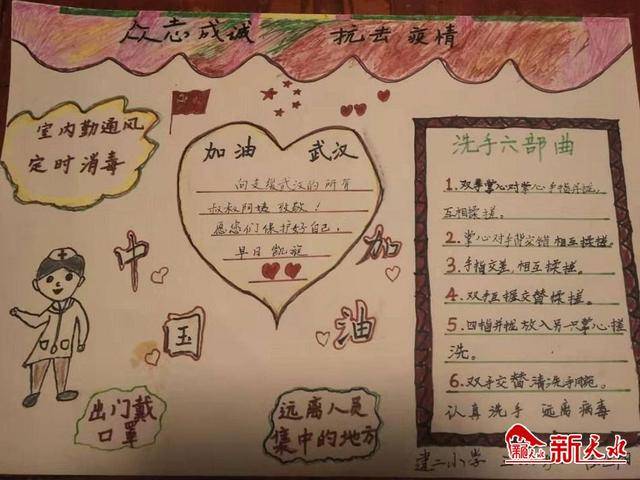 众志成诚 抗击疫情
室内勤通风
定时消毒
加油 武汉
向支援武汉的所有
叔叔阿姨致敬！
愿您们保护好自己，
早日凯旋
中国
加油
出门戴
口罩
远离人员
集中的地方
洗手六部曲
1.双手掌心对掌心手指并拢，
互相揉搓。
2.掌心对手背交错相互揉搓。
3.手指交差，相互揉搓。
4.双手互握交替揉搓。
5.四指并拢放入另一只掌心搓
洗。
6.双手交替清洗手腕。
认真洗手 远离病毒
建二小学
新天水